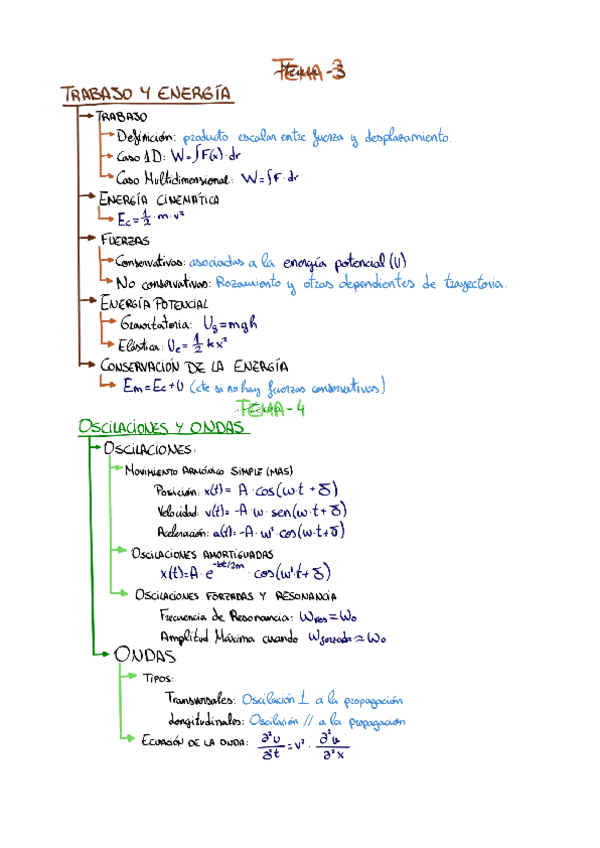 TEMA-3
TRABAJO Y ENERGÍA
TRABAJO
Definición: producto escalar entre fuerza y desplazamiento.
Caso 1D: W=∫F(x)·dr
Caso Multidimensional: W=∫F·dr
ENERGÍA CINEMÁTICA
Ec=½·m·v²
FUERZAS
Conservativas: asociadas a la energía potencial (U)
No conservativas: Rozamiento y otras dependientes de trayectoria.
ENERGÍA POTENCIAL
Gravitatoria: Ug=mgh
Elástica: Ue=½kx²
CONSERVACIÓN DE LA ENERGÍA
Em=Ec+U (cte si no hay fuerzas conservativas)
TEMA-4
OSCILACIONES Y ONDAS
OSCILACIONES:
MOVIMIENTO ARMÓNICO SIMPLE (MAS)
Posición: x(t)= A·cos(w·t+δ)
Velocidad: v(t)= -A·w·sen(w·t+δ)
Aceleración: a(t)=-A·w²·cos(w·t+δ)
OSCILACIONES AMORTIGUADAS
x(t)=A·e^-bt/2m·cos(w't+δ)
OSCILACIONES FORZADAS Y RESONANCIA
Frecuencia de Resonancia: Wres=Wo
Amplitud Máxima cuando Wforzada≈Wo
ONDAS
TIPOS:
Transversales: Oscilación ⊥ a la propagación
Longitudinales: Oscilación // a la propagación
ECUACIÓN DE LA ONDA: ∂²u/∂²t=v²·∂²u/∂²x